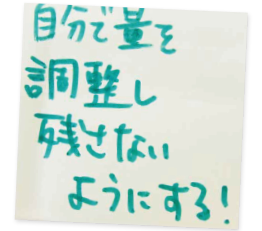 自分で量を
調整し
残さない
ようにする!